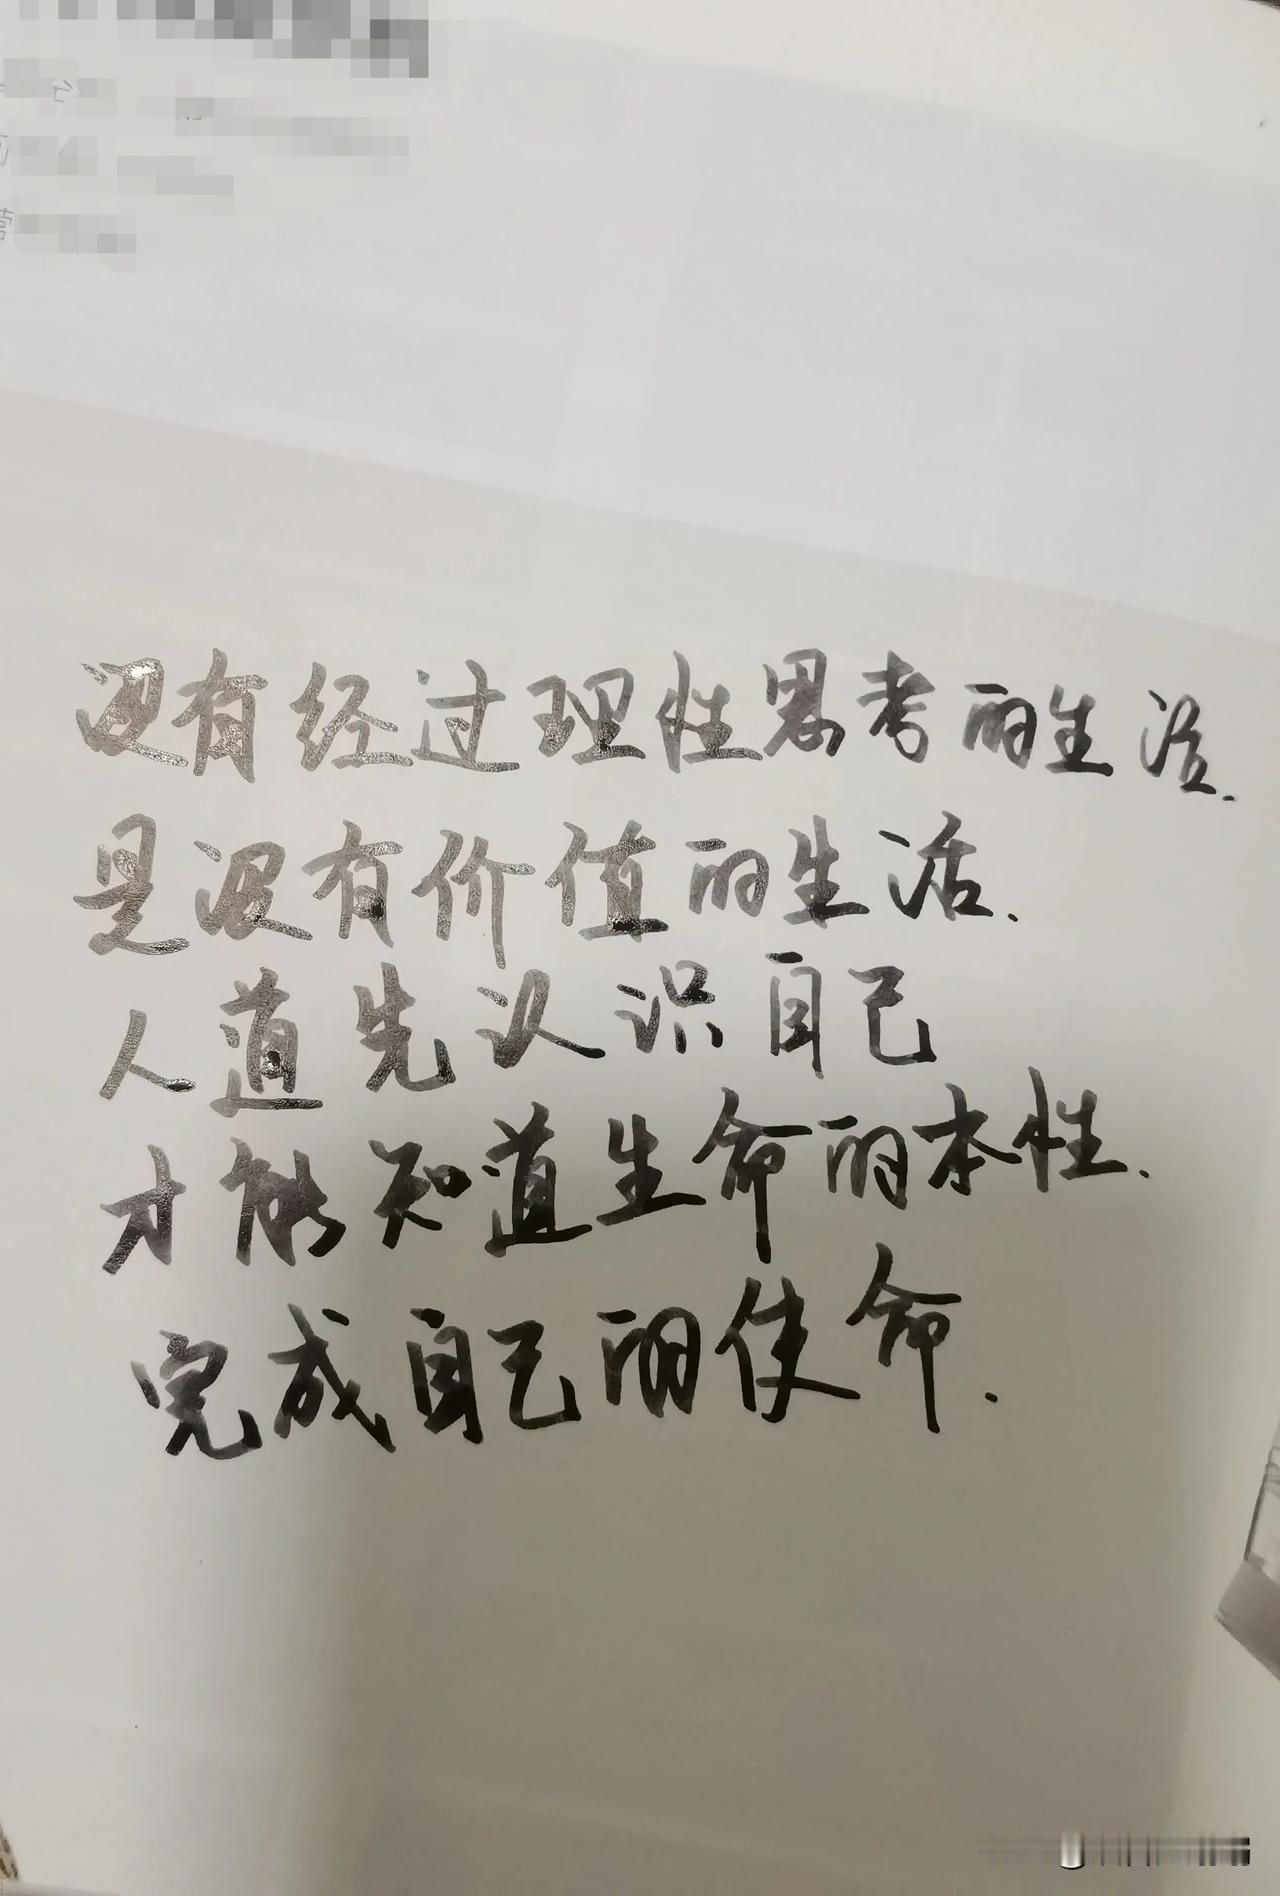 没有经过理性思考的生活.
是没有价值的生活.
人道先认识自己
才能知道生命的本性.
完成自己的使命.